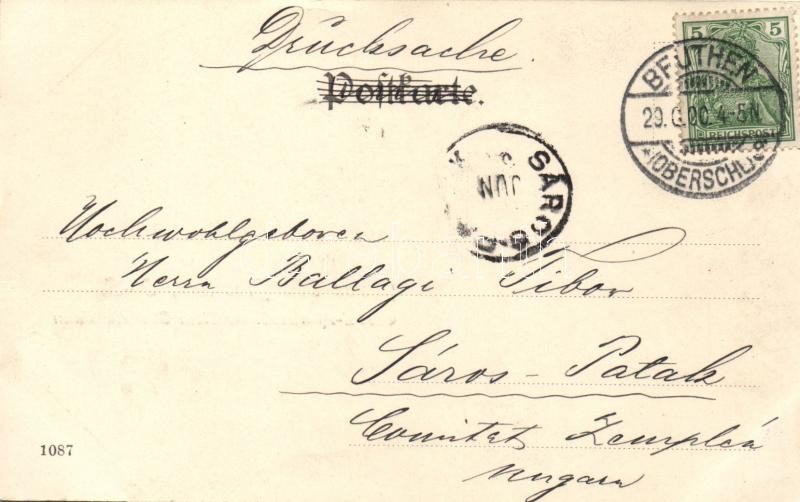 Drucksache.
Postkarte.
5 5
REICHSPOST
BEUTHEN
29.6.00.4-5N
*(OBERSCHL)
SÁROS
JUN
Hochwohlgeboren
Herrn Ballagi Tibor
Sáros-Patak
Comitat Zemplén
Ungarn
1087